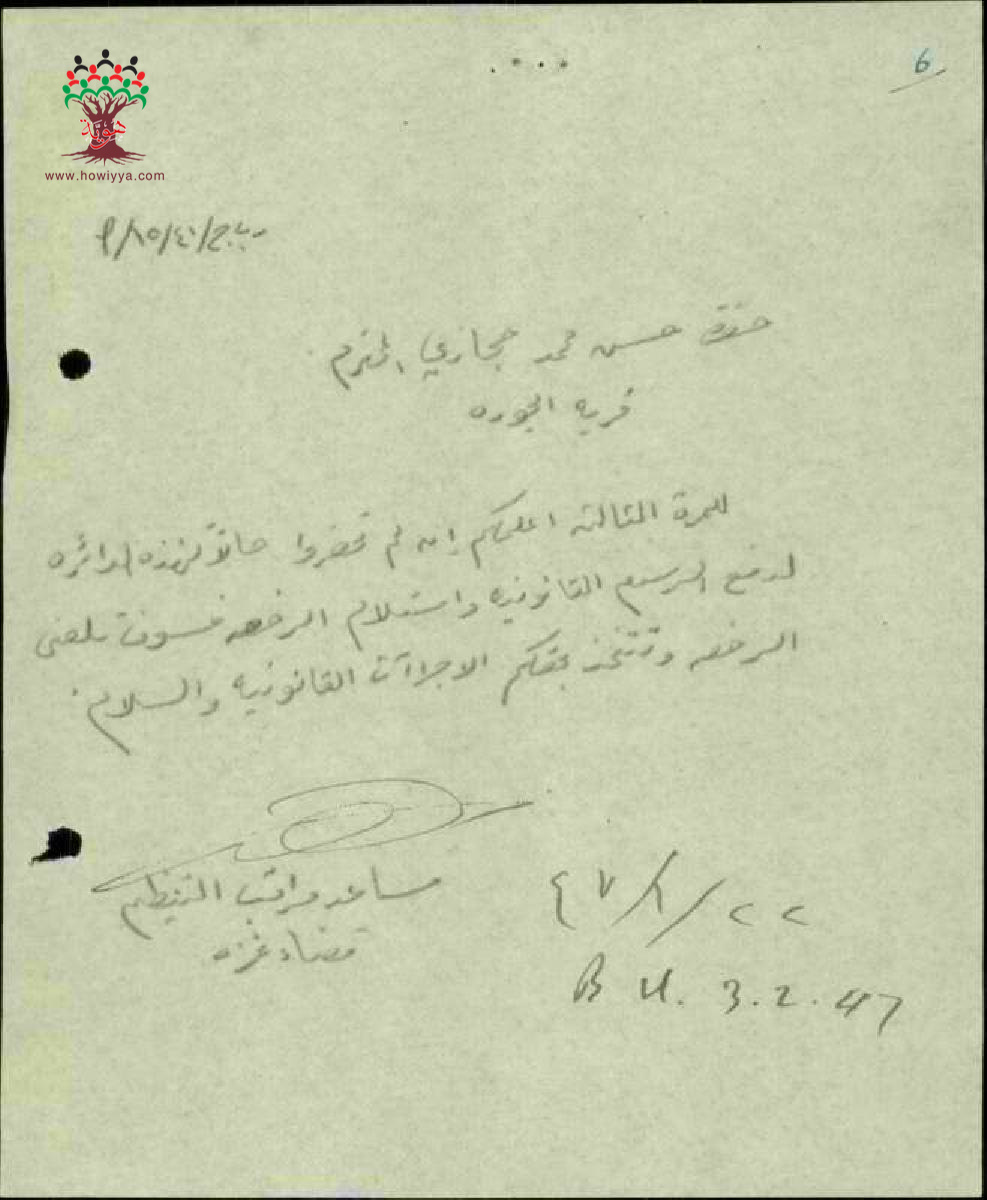 6
هوية
www.howiyya.com
حضرة حسن محمد حجازي المحترم
قرية الجوره
للمرة الثالثه اعلمكم إن لم تحضروا حالاً لهذه الدائره
لدفع الرسوم القانونيه واستلام الرخصه فسوف تلغى
الرخصه وتتخذ بحقكم الاجراآت القانونيه والسلام.
مساعد مراقب التنظيم
قضاء غزه
٢٢/١/٤٧
B U. 3.2.47